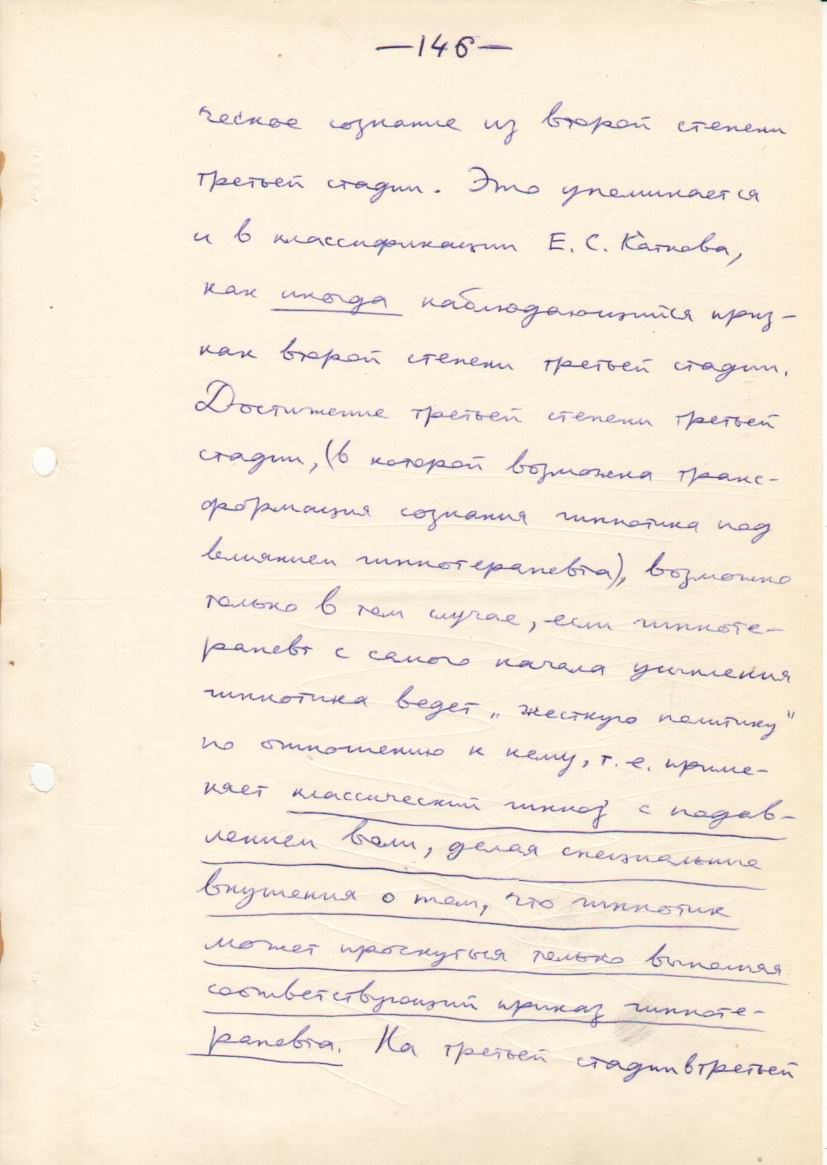 —146—
ческое сознание из второй степени
третьей стадии. Это упоминается
и в классификации Е.С. Каткова,
как иногда наблюдающийся приз-
нак второй степени третьей стадии.
Достижение третьей степени третьей
стадии, (в которой возможна транс-
формация сознания гипнотика под
влиянием гипнотерапевта), возможно
только в том случае, если гипноте-
рапевт с самого начала усыпления
гипнотика ведет „жесткую политику"
по отношению к нему, т.е. приме-
няет классический гипноз с подав-
лением воли, делая специальные
внушения о том, что гипнотик
может проснуться только выполняя
соответствующий приказ гипноте-
рапевта. На третьей стадии в третьей